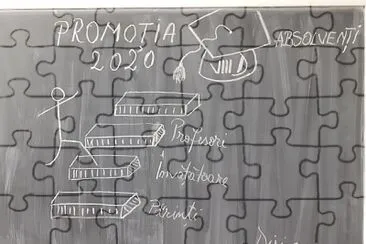 PROMOȚIA
2020
ABSOLVENȚI
VIII D
Profesori
Învățătoare
Părinți